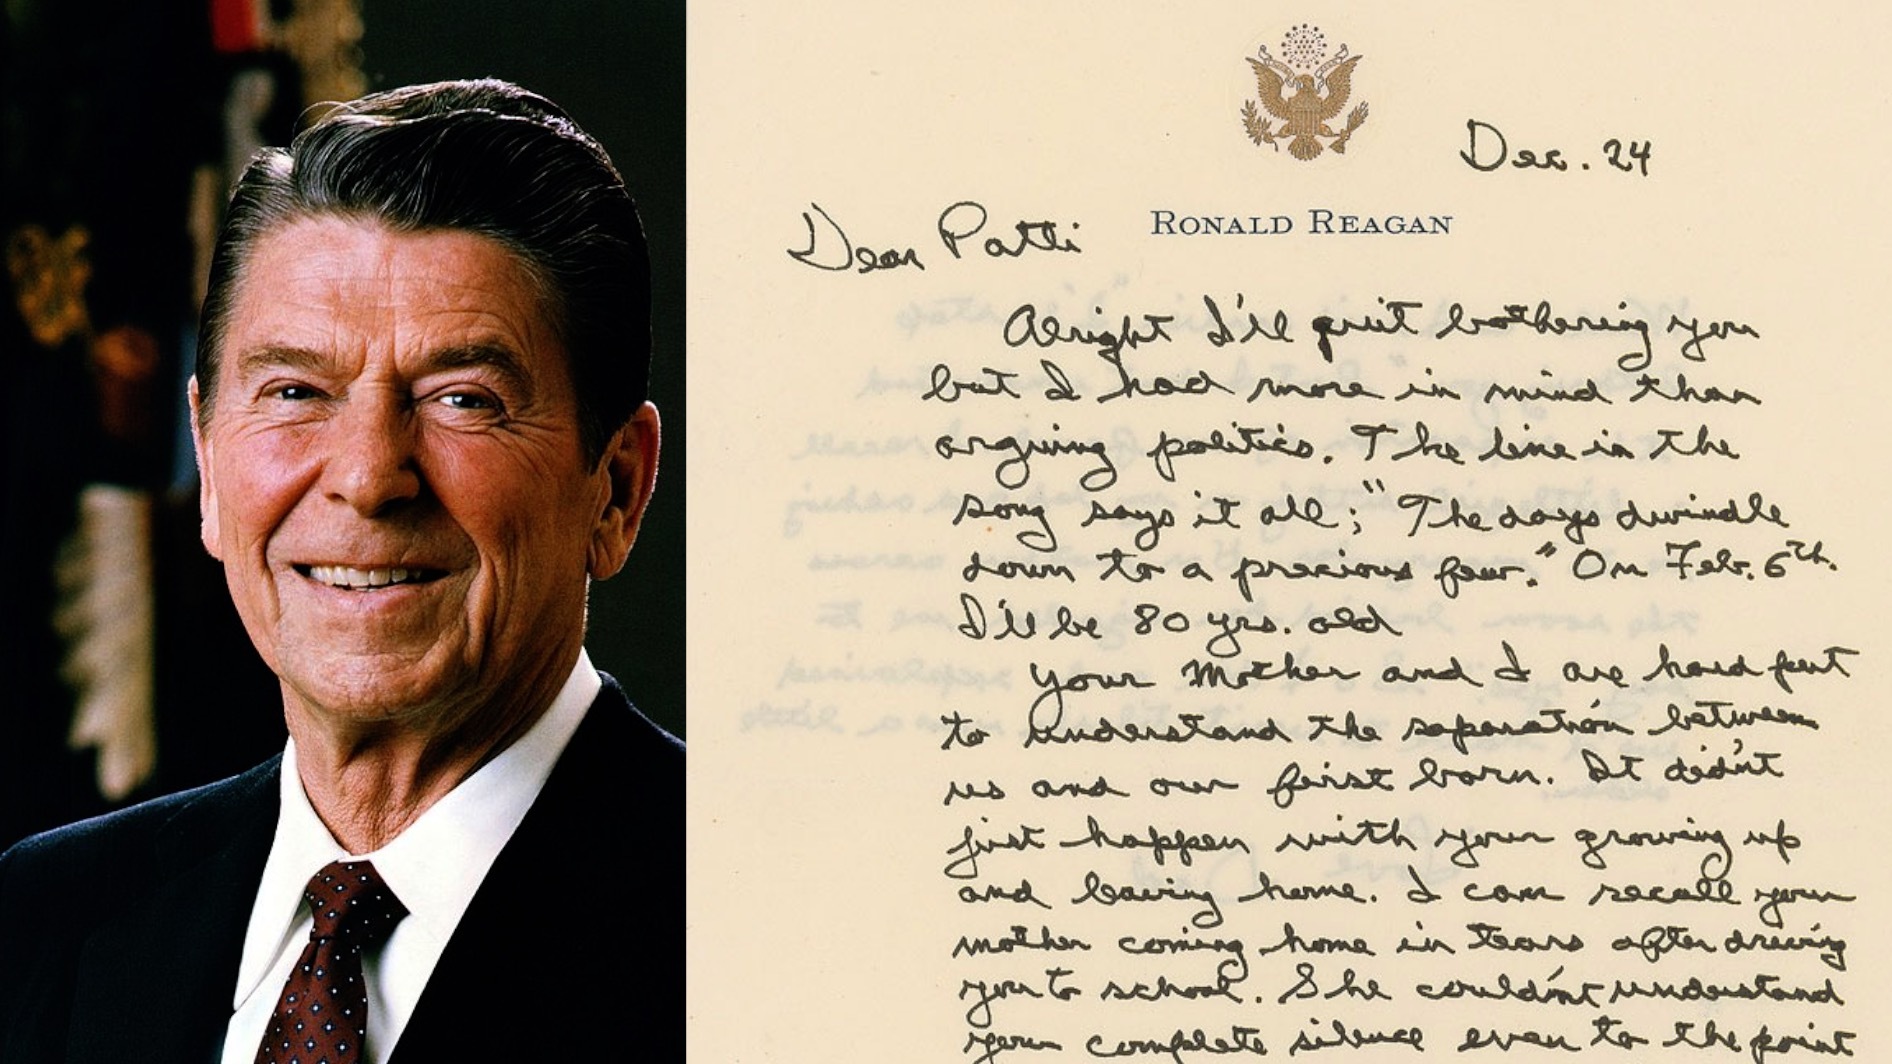 Dec. 24
RONALD REAGAN
Dear Patti
Alright I'll quit bothering you
but I had more in mind than
arguing politics. The line in the
song says it all; "The days dwindle
down to a precious few." On Feb. 6th.
I'll be 80 yrs. old
Your Mother and I are hard put
to understand the separation between
us and our first born. It didn't
just happen with your growing up
and leaving home. I can recall your
mother coming home in tears after driving
you to school. She couldn't understand
your complete silence even to the point